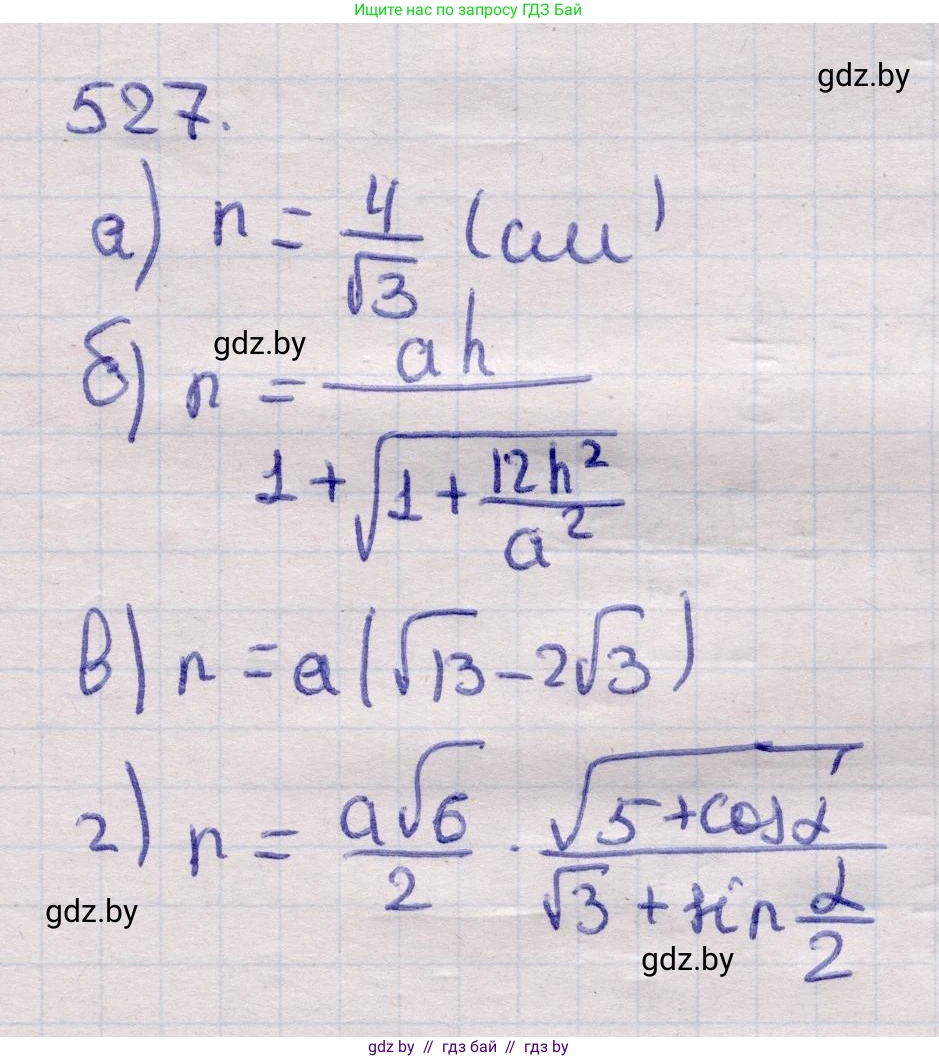 Ищите нас по запросу ГДЗ Бай
gdz.by
527.
а) n = 4/√3 (см)
gdz.by
б) n = ah / (1 + √(1 + 12h²/a²))
в) n = a(√13 - 2√3)
г) n = a√6/2 · √(5 + cos α) / (√3 + sin α/2)
gdz.by
gdz.by
gdz.by // гдз бай // гдз by